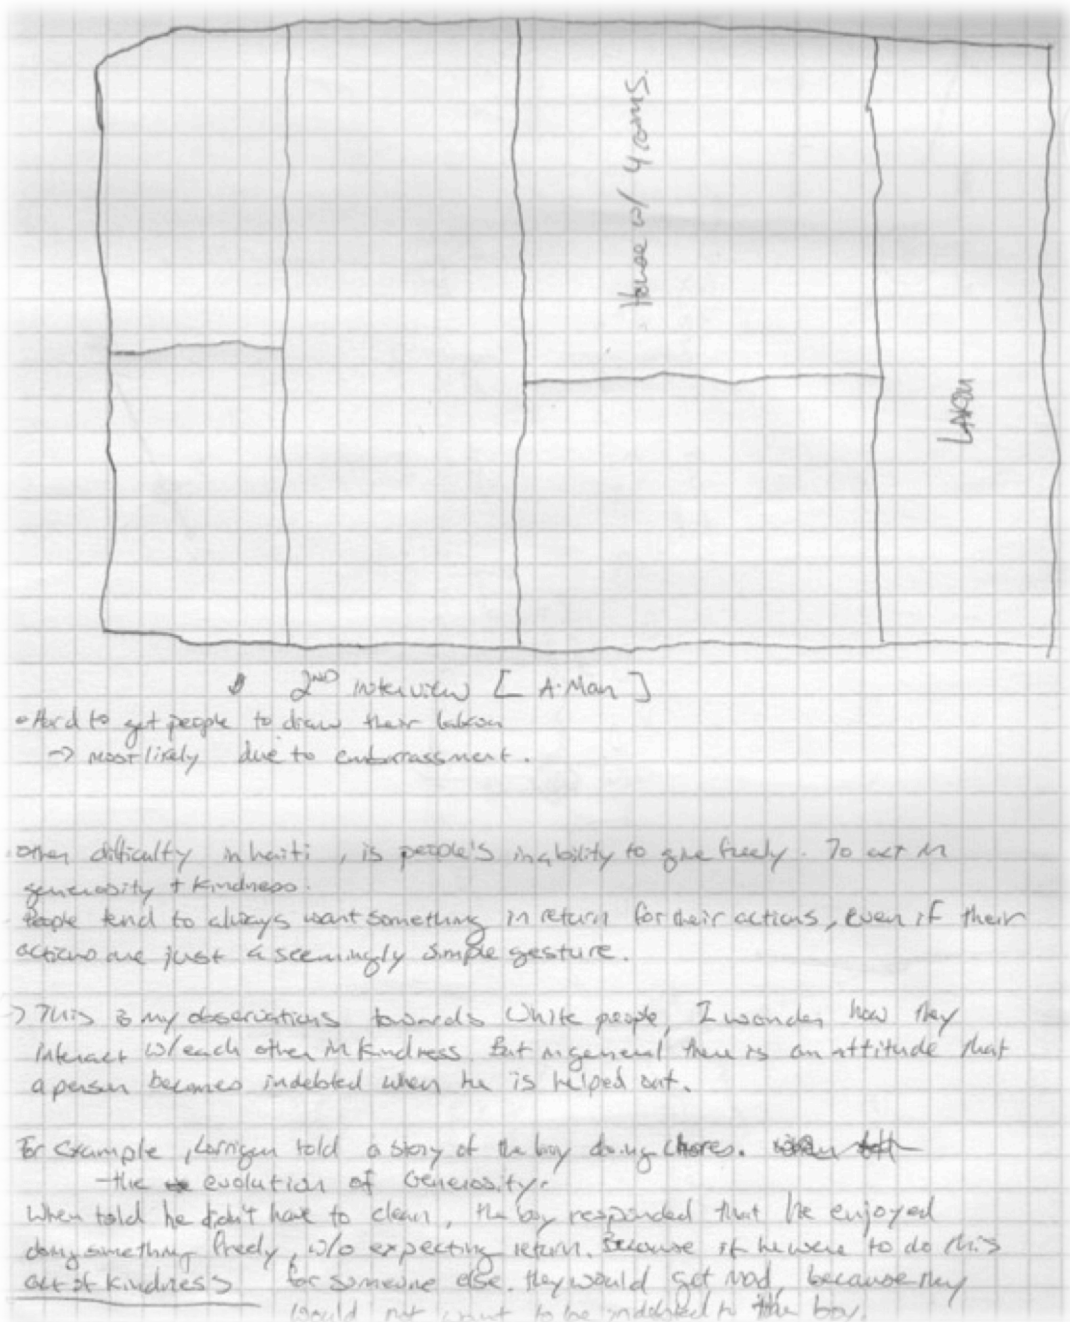 House w/ 4 rooms.
LAKOU
2ND interview [ A. Man ]
• Hard to get people to draw their lakou
→ most likely due to embarrassment.
other difficulty in haiti, is people's inability to give freely. To act in
generosity + kindness.
People tend to always want something in return for their actions, even if their
actions are just a seemingly simple gesture.
→ This is my observations towards White people, I wonder how they
interact w/ each other in kindness. But in general there is an attitude that
a person becomes indebted when he is helped out.
For example, Corrigan told a story of the boy doing chores.
- the evolution of Generosity.
When told he didn't have to clean, the boy responded that he enjoyed
doing something freely, w/o expecting return. Because if he were to do this
act of kindness for someone else. they would get mad, because they
would not want to be indebted to the boy.